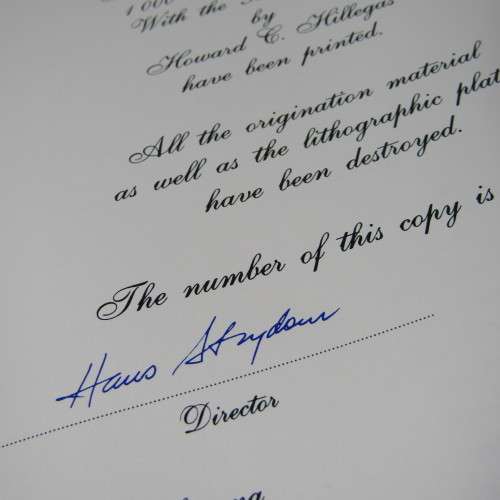 1 000
With the
by
Howard C. Hillegas
have been printed.
All the origination material
as well as the lithographic plat
have been destroyed.
The number of this copy is
Hans Strydom
Director